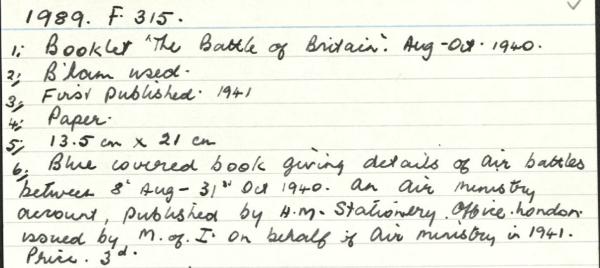 1989. F. 315.
1; Booklet "The Battle of Britain". Aug-Oct. 1940.
2; B'ham used.
3; First Published. 1941
4; Paper.
5; 13.5 cm x 21 cm
6; Blue covered book giving details of air battles
between 8' Aug - 31st Oct 1940. An air ministry
account, published by H.M. Stationery Office. London.
issued by M. of I. on behalf of air ministry in 1941.
Price. 3d.